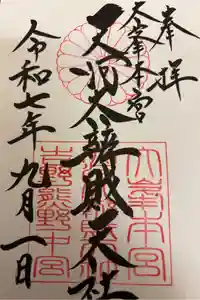 奉拝
大峯本宮
天河大辨財天社
令和七年九月一日